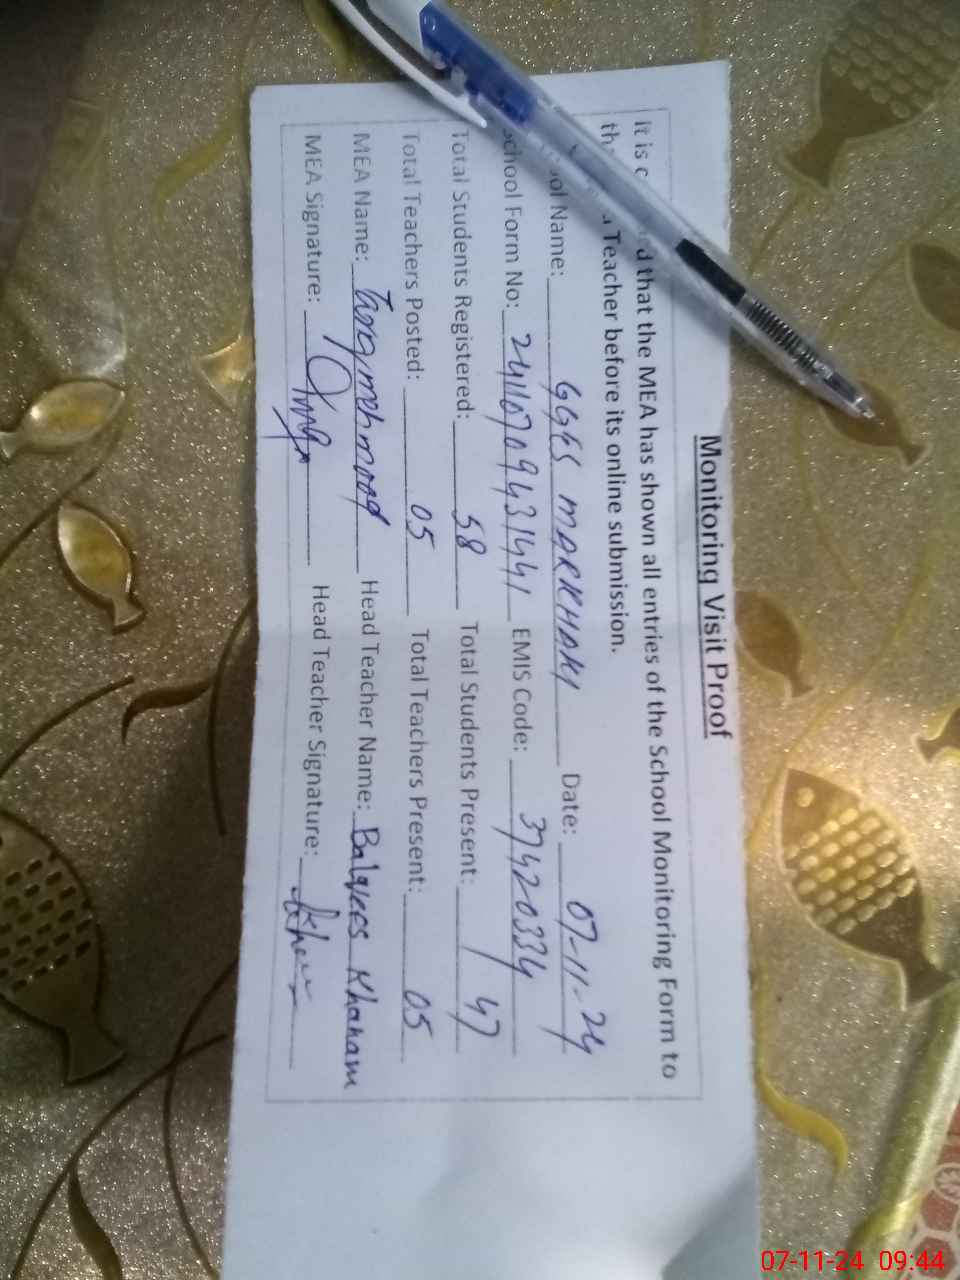 Monitoring Visit Proof
It is c d that the MEA has shown all entries of the School Monitoring Form to
th Teacher before its online submission.
ool Name: GGES MARKHAKI Date: 07-11-24
School Form No: 24116709431441 EMIS Code: 37420334
Total Students Registered: 58 Total Students Present: 47
Total Teachers Posted: 05 Total Teachers Present: 05
MEA Name: Tariq mehmood Head Teacher Name: Balqees Khanam
MEA Signature: Head Teacher Signature:
07-11-24 09:44